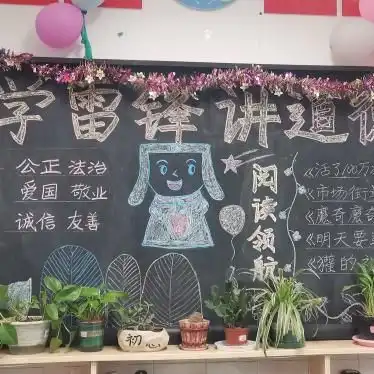 学雷锋讲道德
公正 法治
爱国 敬业
诚信 友善
阅读领航
《活了100万
《市场街
《魔奇魔奇
《明天要
《獾的礼
初心